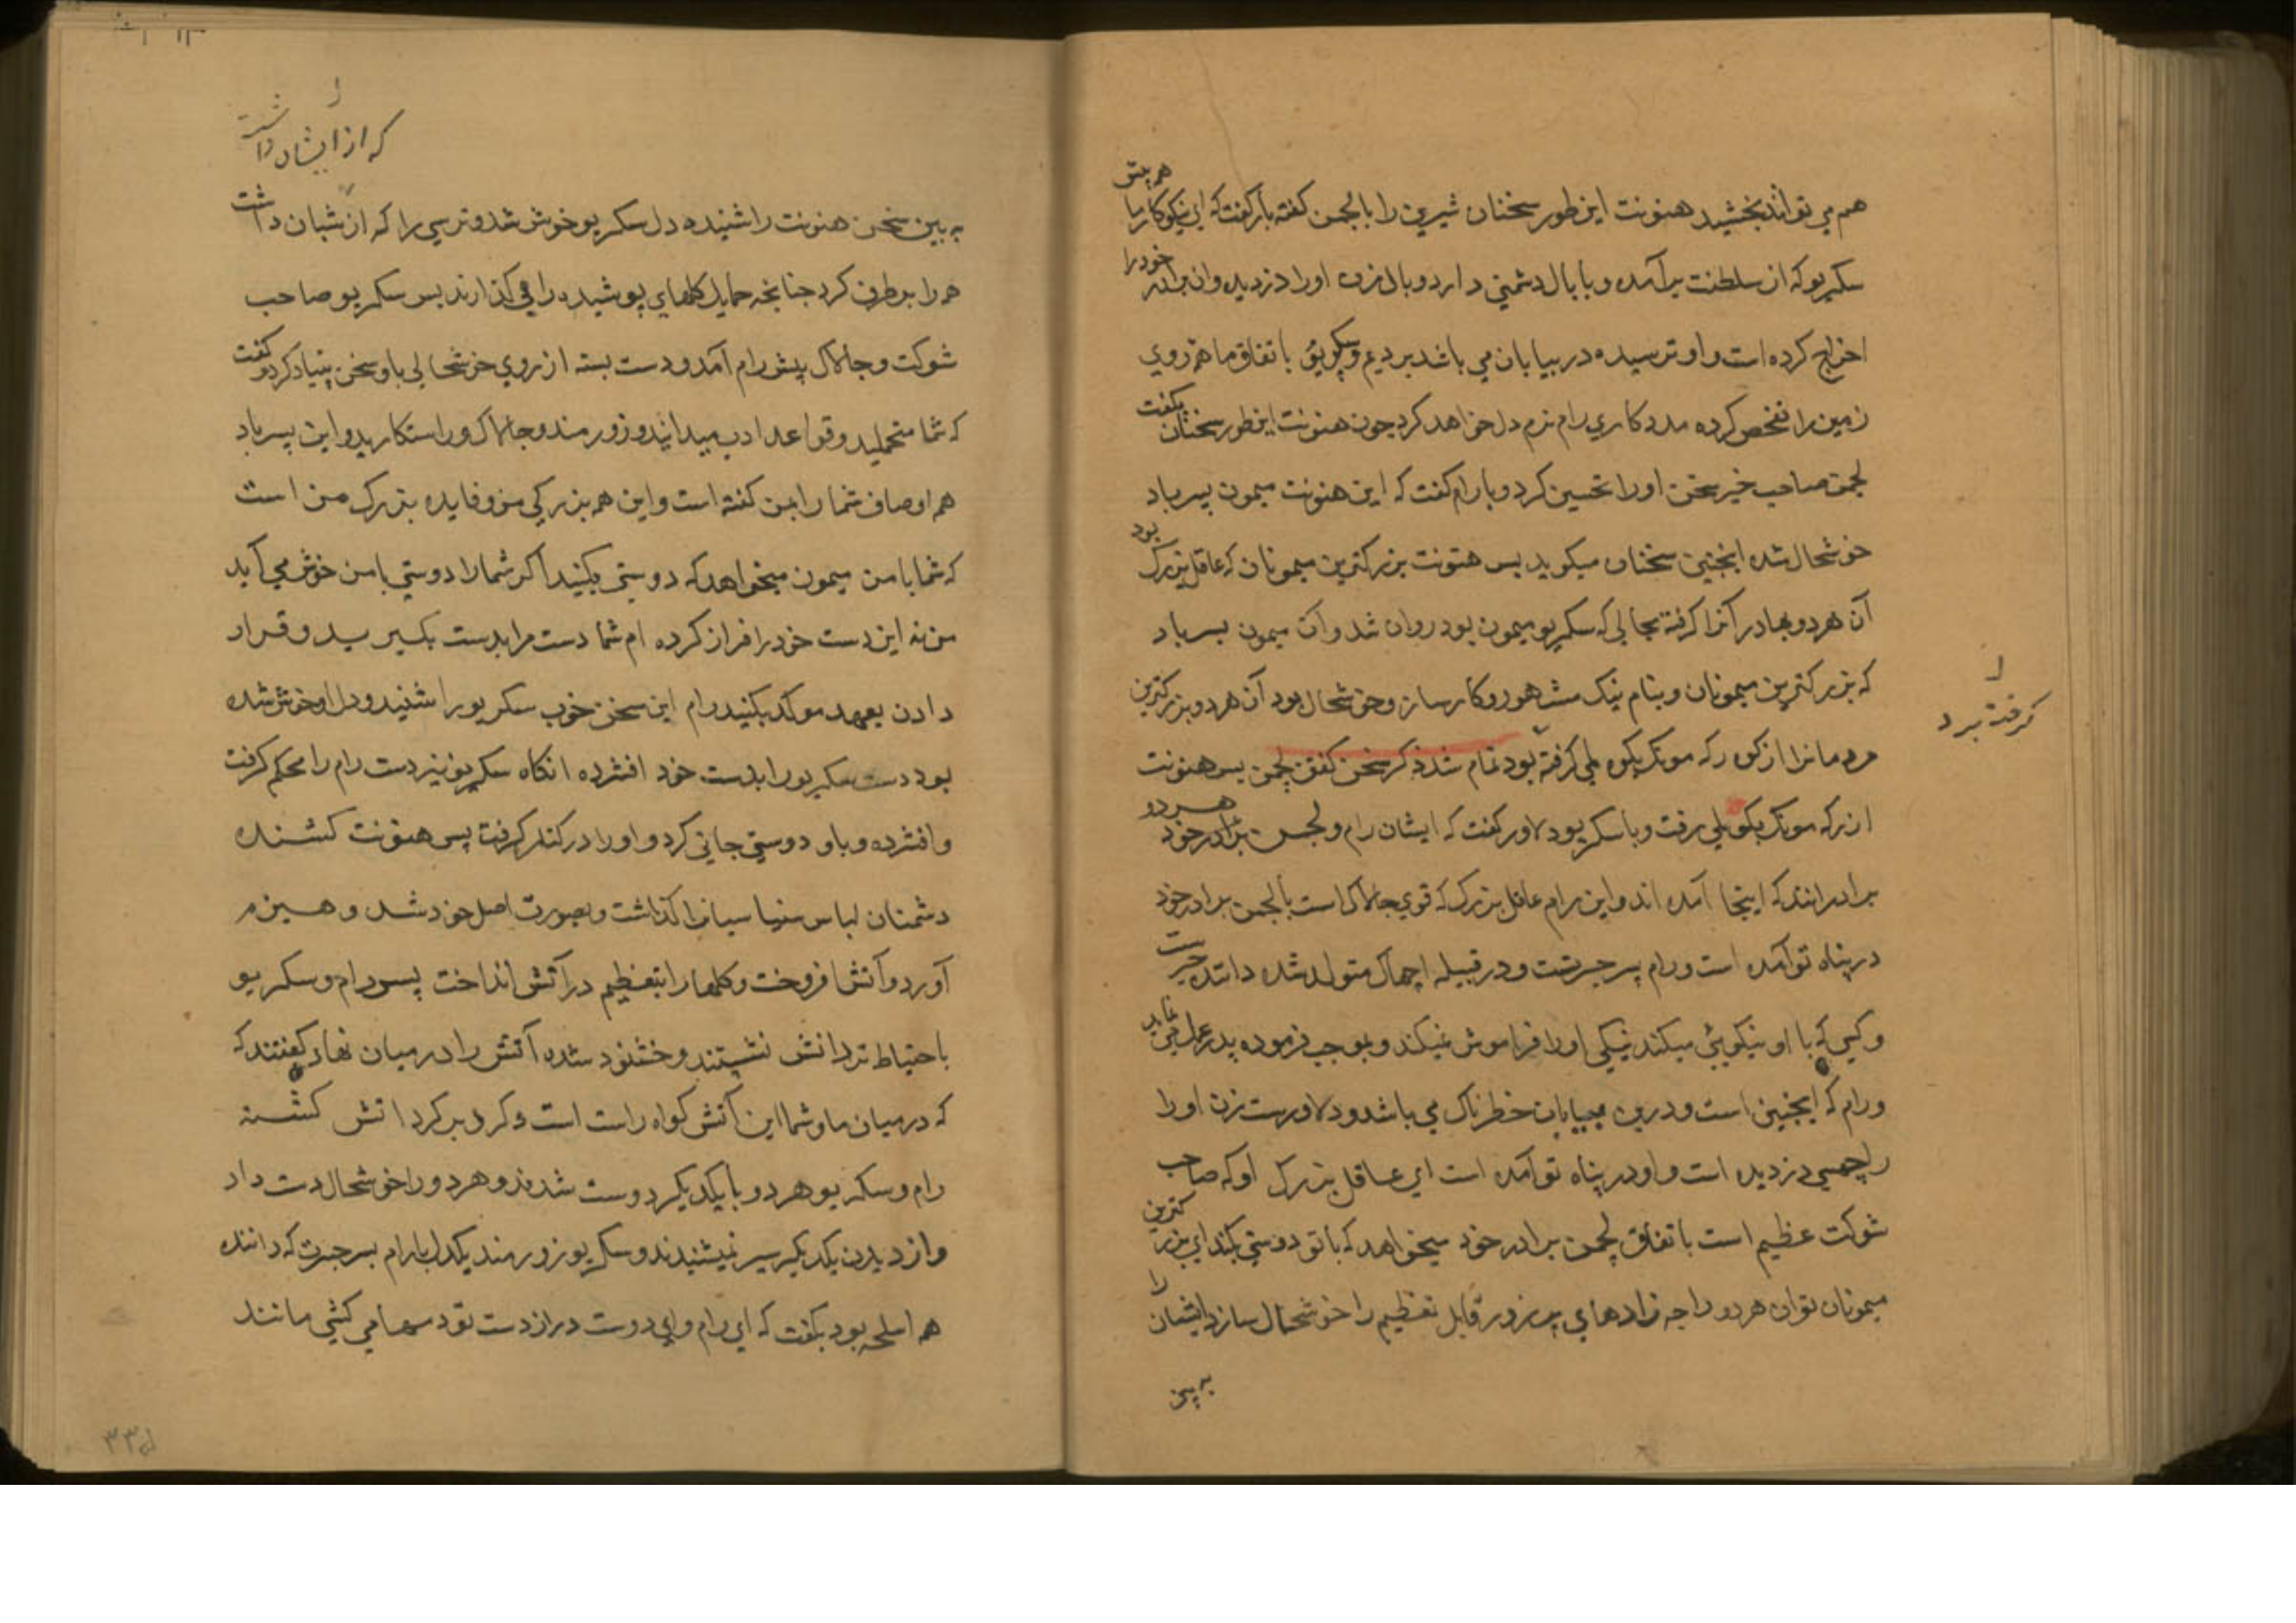 هم پیش
هم می تواند بخشید هنونت این طور سخنان شیرین را با لچمن کفته باز کفت که این نیکوکار ما
سکریو که از سلطنت برآمده و با بال دشمنی دارد و بال زن او را دزدیده و ان برادر خود را
اخراج کرده است و او ترسیده در بیابان می باشد باتفاق ما هم روی
زمین را تفحص کرده مدد کاری رام نرم دل خواهد کرد چون هنونت این طور سخنان بکفت
لچمن صاحب خیر سخن او را تحسین کرد و با رام کفت که این هنونت میمون پسر باد
خوشحال شده اینچنین سخنان میکوید پس هنونت بزرکترین میمونان که عاقل بزرک بود
آن هر دو بهادر آنرا کرفته بجا لی که سکریو میمون بود روان شد و آن میمون پسر باد
که بزرکترین میمونان و بنام نیک مشهور و کارساز و خوشحال بود آن هر دو بزرکترین
کرفته برد
مردمانرا از کوه رکه مونک بکوه ملی کرفته بود تمام شد ذکر سخن کفتن لچمن پس هنونت
از رکه مونک بکوه ملی رفت و با سکریو دلاور کفت که ایشان رام و لچمن هر دو برادر خود
برادرانند که اینجا آمده اند و این رام عاقل بزرک که قوی چالاک است با لچمن برادر خود
در پناه تو آمده است و رام پسر جسرتست و در قبیله اچهاک متولد شده دانند
و کسی که با او نیکویی میکند نیکی او را فراموش نمیکند و بموجب فرموده پدر عمل می نماید
و رام که اینچنین است و درین بیابان خطرناک می باشد و دلاورست زن او را
راچهسی دزدیده است و او در پناه تو آمده است ای عاقل بزرک او که صاحب
شوکت عظیم است باتفاق لچمن برادر خود میخواهد که با تو دوستی بکند ای بزرکترین
میمونان تو ان هر دو راجه زادهای پر زور قابل تعظیم را خوشحال ساز ایشان را
به بین
که از ایشان داشت
به بین سخن هنونت را شنیده دل سکریو خوش شد و ترسی را که ازشان داشت
همه را برطرف کرد چنانچه حمایل کلهای پوشیده را می کذارند پس سکریو صاحب
شوکت و چالاک پیش رام آمد و دست بسته از روی خوشحالی باو سخن بنیاد کرد و کفت
که شما متحملید و قواعد ادب میدانید و زورمند و چالاک و راستکارید و این پسر باد
هم اوصاف شما را بمن کفته است و این هم بزرکی من و فایده بزرک من است
که شما با من میمون میخواهد که دوستی بکنید اکر شما را دوستی با من خوش می آید
من نه این دست خود را فراز کرده ام شما دست مرا بدست بکیرید و قرار
دادن بعهد موکد بکنید رام این سخن خوب سکریو را شنید و دل او خوش شده
بود دست سکریو را بدست خود افشرده انکاه سکریو نیز دست رام را محکم کرفت
و افشرده و باو دوستی جانی کرد و او را در کنار کرفت پس هنونت کشنده
دشمنان لباس سنیاسیانرا کذاشت و بصورت اصل خود شد و هیزم
آورد و آتش افروخت و کلها را بتعظیم در آتش انداخت پس رام و سکریو
باحتیاط نزد آتش نشستند و خشنود شده آتش را در میان نهاد کفتند که
که در میان ما و شما این آتش کواه راست است و کرد بر کرد اتش کشته
رام و سکریو هر دو با یکدیکر دوست شدند و هر دو را خوشحال دست داد
و از دیدن یکدیکر سیر نمیشدند و سکریو زورمند یکدل با رام پسر جسرت که داننده
همه اسلحه بود بکفت که ای رام و ای دوست دراز دست تو در سها می کشی مانند